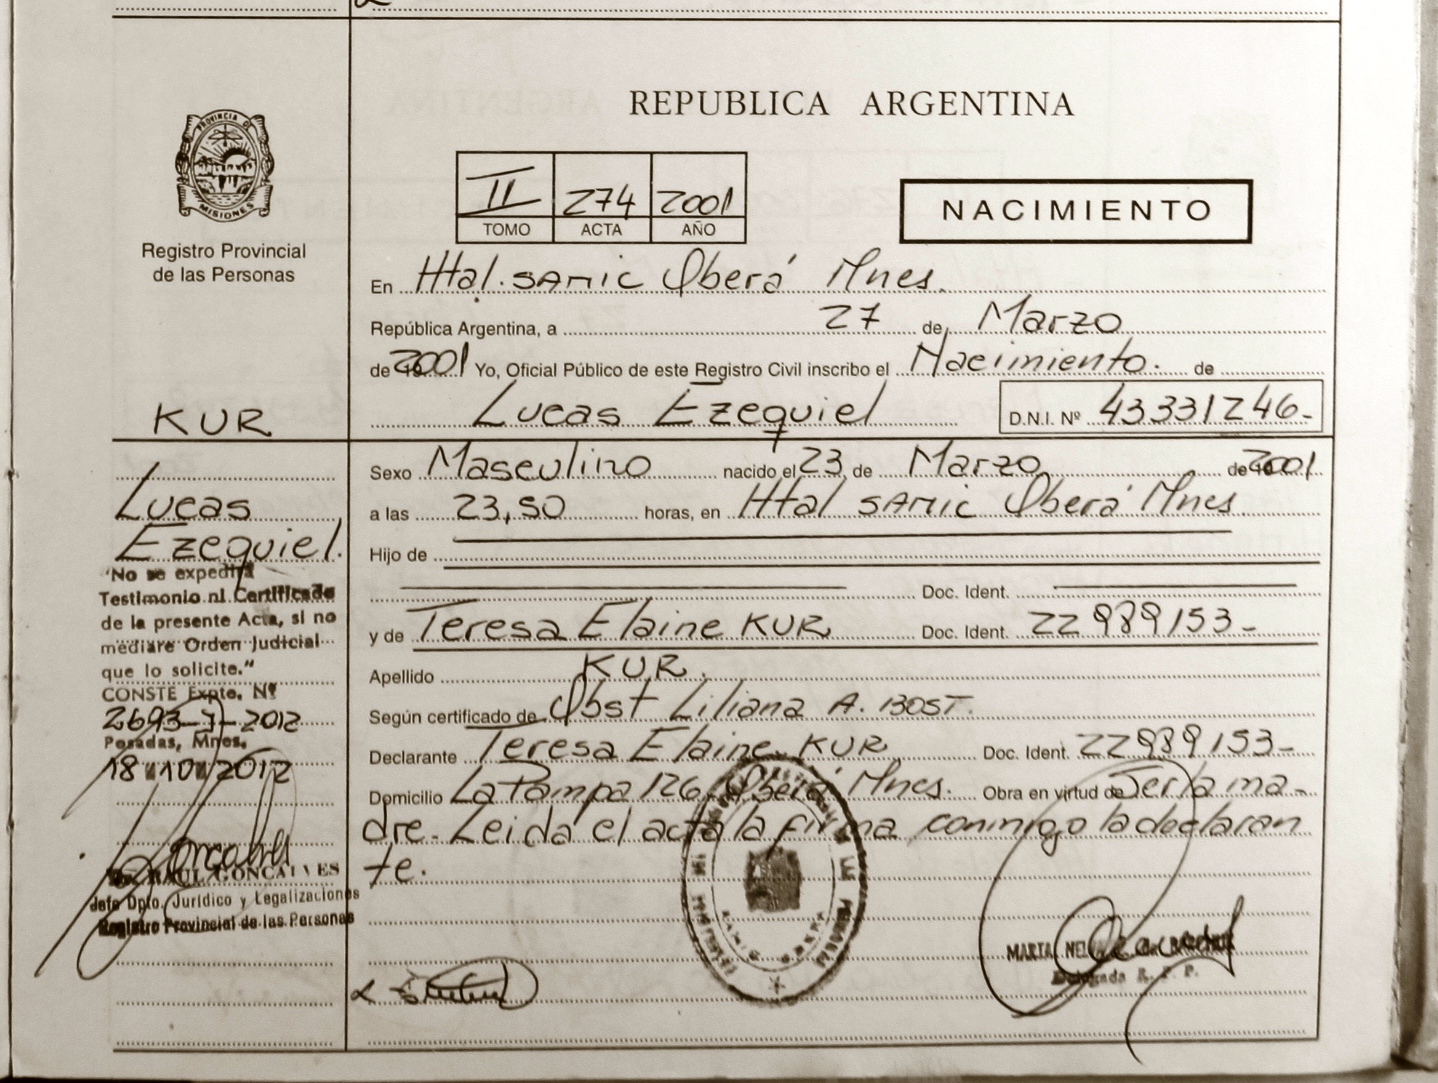 REPUBLICA ARGENTINA
PROVINCIA DE
MISIONES
Registro Provincial
de las Personas
II 274 2001
TOMO ACTA AÑO
NACIMIENTO
En Htal. SAMIC Oberá Mnes.
República Argentina, a 27 de Marzo
de 2001 Yo, Oficial Público de este Registro Civil inscribo el Nacimiento. de
Lucas Ezequiel D.N.I. Nº 43331246-
KUR
Lucas
Ezequiel.
"No se expedirá
Testimonio ni Certificado
de la presente Acta, si no
mediare Orden Judicial
que lo solicite."
CONSTE Expte. Nº
2693-J-2012
Posadas, Mnes.
18 10 2012
RAUL GONCALVES
Jefe Dpto. Jurídico y Legalizaciones
Registro Provincial de las Personas
Sexo Masculino nacido el 23 de Marzo de 2001
a las 23,50 horas, en Htal SAMIC Oberá Mnes
Hijo de
Doc. Ident.
y de Teresa Elaine KUR Doc. Ident. 22989153-
Apellido KUR.
Según certificado de Obst Liliana A. BOST.
Declarante Teresa Elaine KUR Doc. Ident. 22989153-
Domicilio La Pampa 126 Oberá Mnes. Obra en virtud de Ser la ma-
dre. Leida el acta la firma conmigo la declaran
te.
MARIA
Delegada R. P. P.